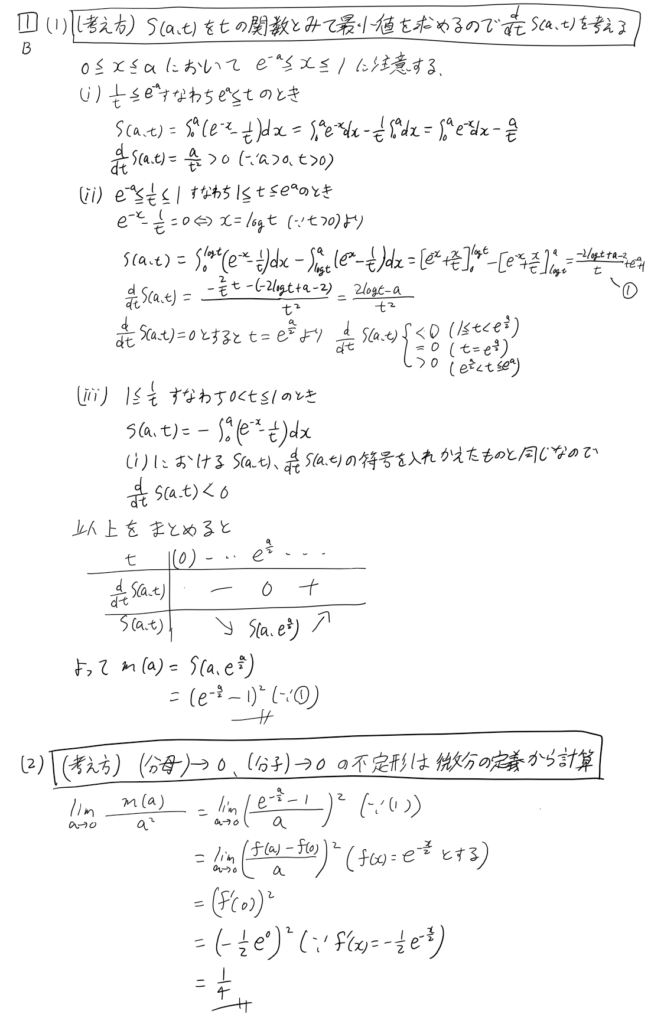 1 (1) (考え方) S(a,t)をtの関数とみて最小値を求めるので d/dt S(a,t)を考える
B
0≦x≦aにおいて e^{-a}≦x≦1に注意する.
(i) 1/t≦e^{-a}すなわちe^a≦tのとき
S(a,t) = ∫_0^a(e^{-x}-1/t)dx = ∫_0^a e^{-x}dx - 1/t∫_0^a dx = ∫_0^a e^{-x}dx - a/t
d/dt S(a,t) = a/t² > 0 (∵a>0, t>0)
(ii) e^{-a}≦1/t≦1 すなわち1≦t≦e^aのとき
e^{-x}-1/t=0⇔x=logt (∵t>0)より
S(a,t) = ∫_0^{logt}(e^{-x}-1/t)dx - ∫_{logt}^a(e^{-x}-1/t)dx = [e^{-x}+x/t]_0^{logt} - [e^{-x}+x/t]_{logt}^a = (-2logt+a-2)/t + e^{-a}+1
①
d/dt S(a,t) = (-2/t t-(-2logt+a-2))/t² = (2logt-a)/t²
d/dt S(a,t)=0とするとt=e^{a/2}より d/dt S(a,t) { <0 (1≦t<e^{a/2})
=0 (t=e^{a/2})
>0 (e^{a/2}<t≦e^a)
(iii) 1≦1/t すなわち0<t≦1のとき
S(a,t) = -∫_0^a(e^{-x}-1/t)dx
(i)における S(a,t), d/dt S(a,t)の符号を入れかえたものと同じなので
d/dt S(a,t)<0
以上をまとめると
t (0) ‥‥ e^{a/2} ‥‥
d/dt S(a,t) - 0 +
S(a,t) ↘ S(a,e^{a/2}) ↗
よって m(a) = S(a,e^{a/2})
= (e^{-a/2}-1)² (∵①)
(2) (考え方) (分母)→0, (分子)→0 の不定形は微分の定義から計算
lim_{a→0} m(a)/a² = lim_{a→0}((e^{-a/2}-1)/a)² (∵(1))
= lim_{a→0}((f(a)-f(0))/a)² (f(x)=e^{-x/2}とする)
= (f'(0))²
= (-1/2 e^0)² (∵f'(x)=-1/2 e^{-x/2})
= 1/4